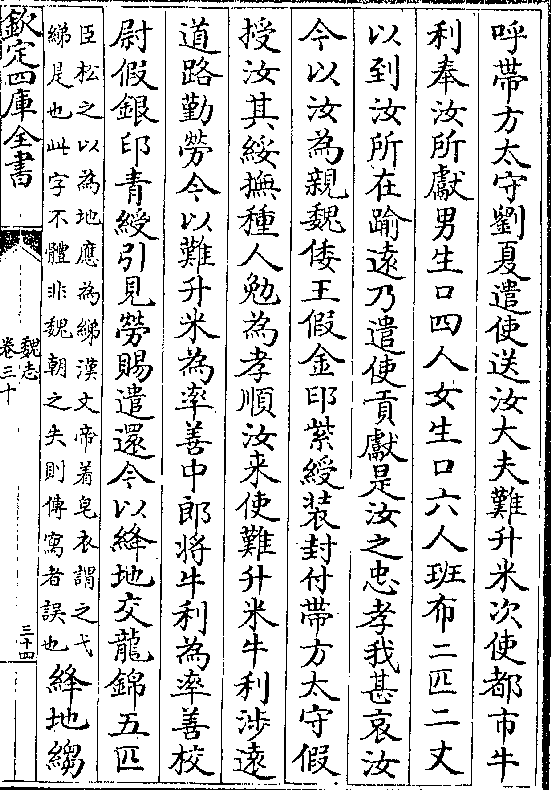 呼帶方太守劉夏遣使送汝大夫難升米次使都市牛
利奉汝所獻男生口四人女生口六人班布二匹二丈
以到汝所在踰遠乃遣使貢獻是汝之忠孝我甚哀汝
今以汝為親魏倭王假金印紫綬装封付帶方太守假
授汝其綏撫種人勉為孝順汝来使難升米牛利渉遠
道路勤勞今以難升米為率善中郎將牛利為率善校
尉假銀印青綬引見勞賜遣還今以絳地交龍錦五匹
臣松之以為地應為綈漢文帝着皂衣謂之弋
綈是也此字不體非魏朝之失則傳寫者誤也
絳地縐
欽定四庫全書
魏志
卷三十
三十四